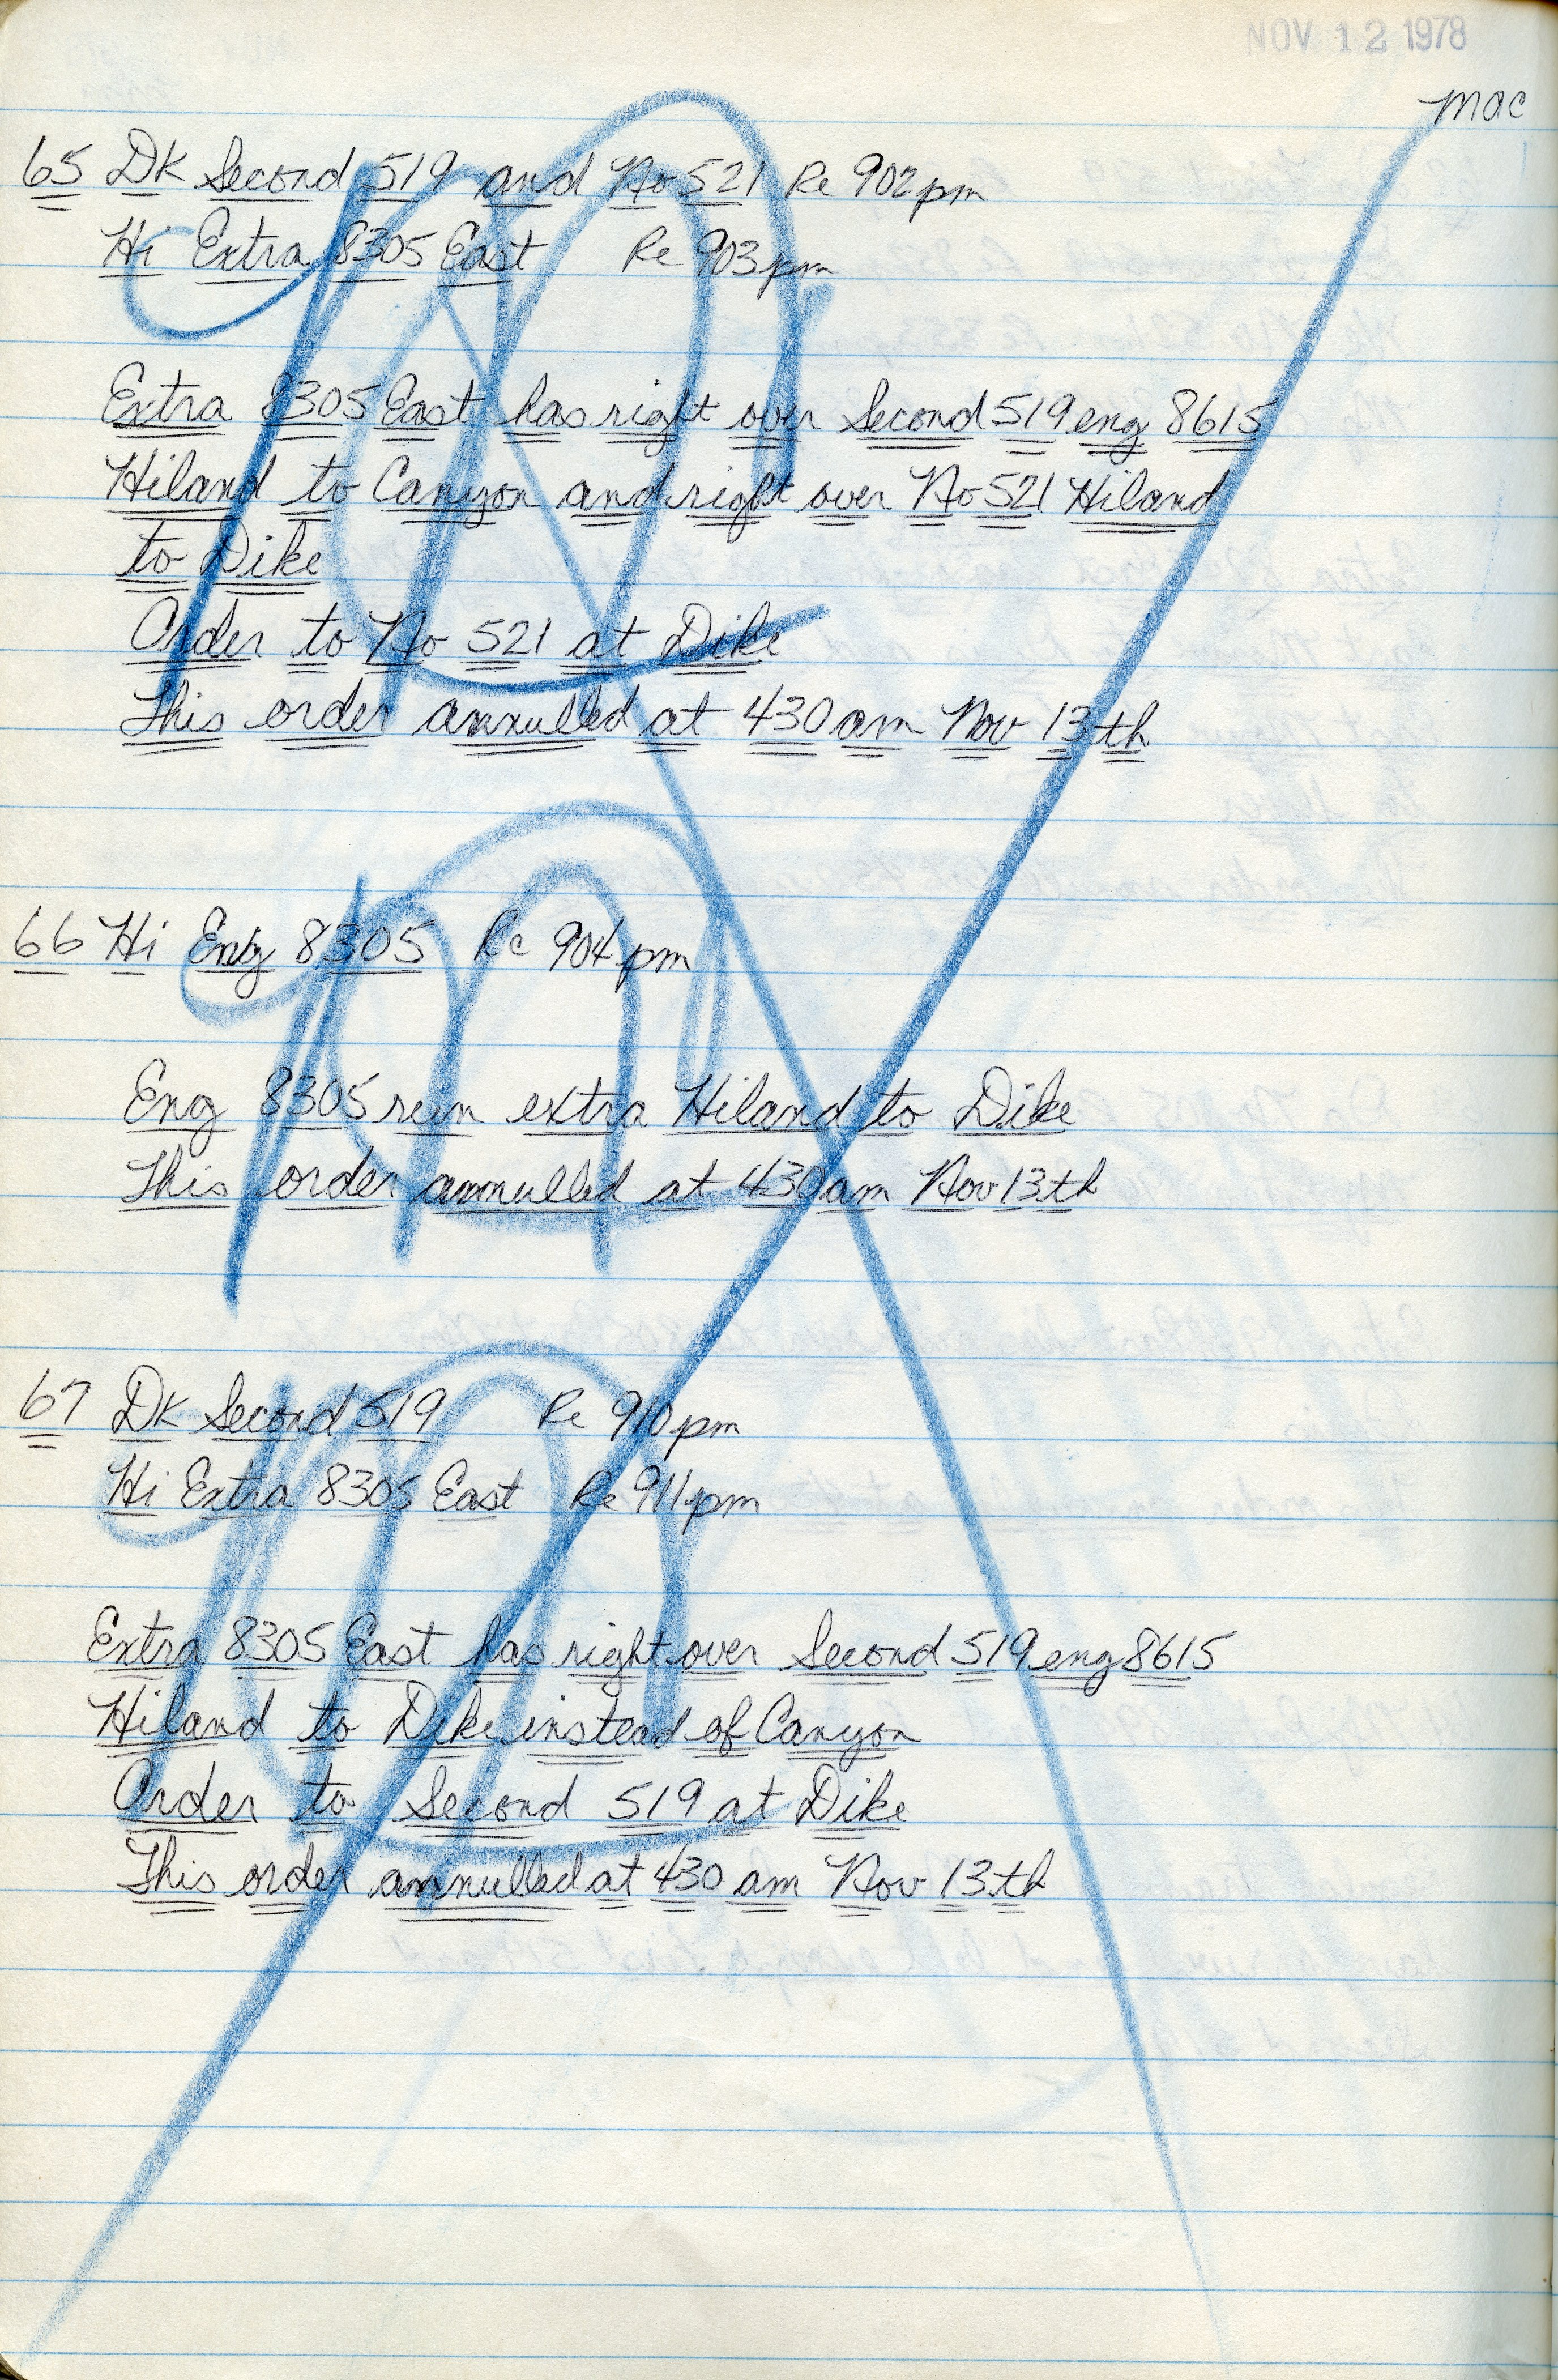 NOV 12 1978
mac
65 Dk Second 519 and No 521 Re 902pm
Hi Extra 8305 East Re 903pm
Extra 8305 East has right over Second 519 eng 8615
Hiland to Canyon and right over No 521 Hiland
to Dike
Order to No 521 at Dike
This order annulled at 430am Nov 13th
66 Hi Eng 8305 Re 904pm
Eng 8305 run extra Hiland to Dike
This order annulled at 430am Nov 13th
67 Dk Second 519 Re 910pm
Hi Extra 8305 East Re 911pm
Extra 8305 East has right over Second 519 eng 8615
Hiland to Dike instead of Canyon
Order to Second 519 at Dike
This order annulled at 430 am Nov 13th